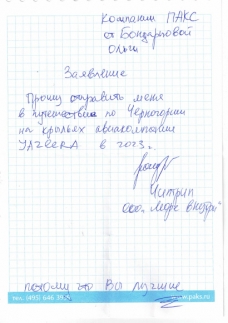 Компании ПАКС
от Бондарьовой
Ольги
Заявление
Прошу отправить меня
в путешествие по Черногории
на крыльях авиакомпании
в 2023 г.
ООО "Море внутри"
потому что Вы лучшие
тел. (495) 646
paks.ru